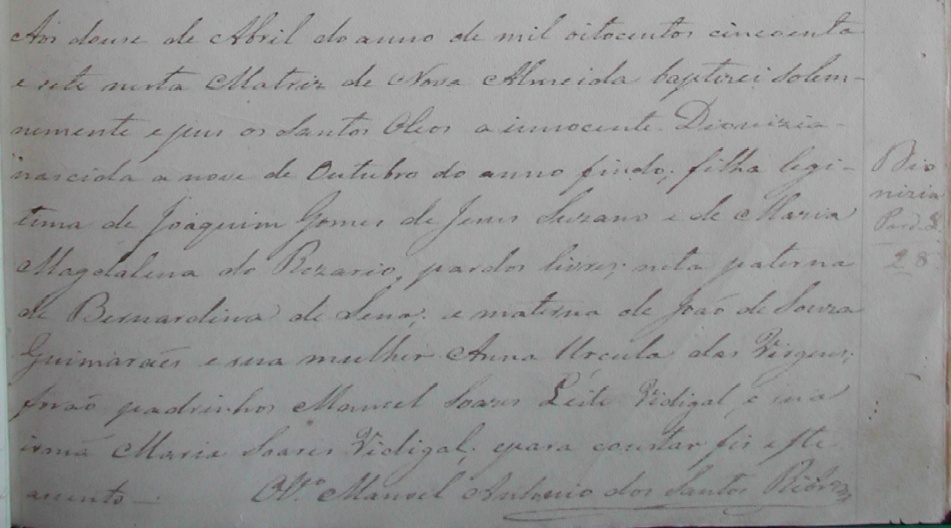 Aos douse de Abril do anno de mil oitocentos cincoenta
e sete nesta Matriz de Nova Almeida baptizei Solem-
nemente e pus os Santos Oleos a innocente Dionizia
nascida a nove de Outubro do anno findo; filha legi-
tima de Joaquim Gomes de Jesus Suzano e de Maria
Magdalena do Rozario, pardos livres; neta paterna
de Bernardina de Sena; e materna de João de Souza
Guimarães e sua mulher Anna Urcula das Virgens;
forão padrinhos Manoel Soares Leite Vidigal, e sua
irmã Maria Soares Vidigal; epara constar fis este
assento—. O Vº Manoel Antonio dos Santos
Dio
nizia
Parda
28